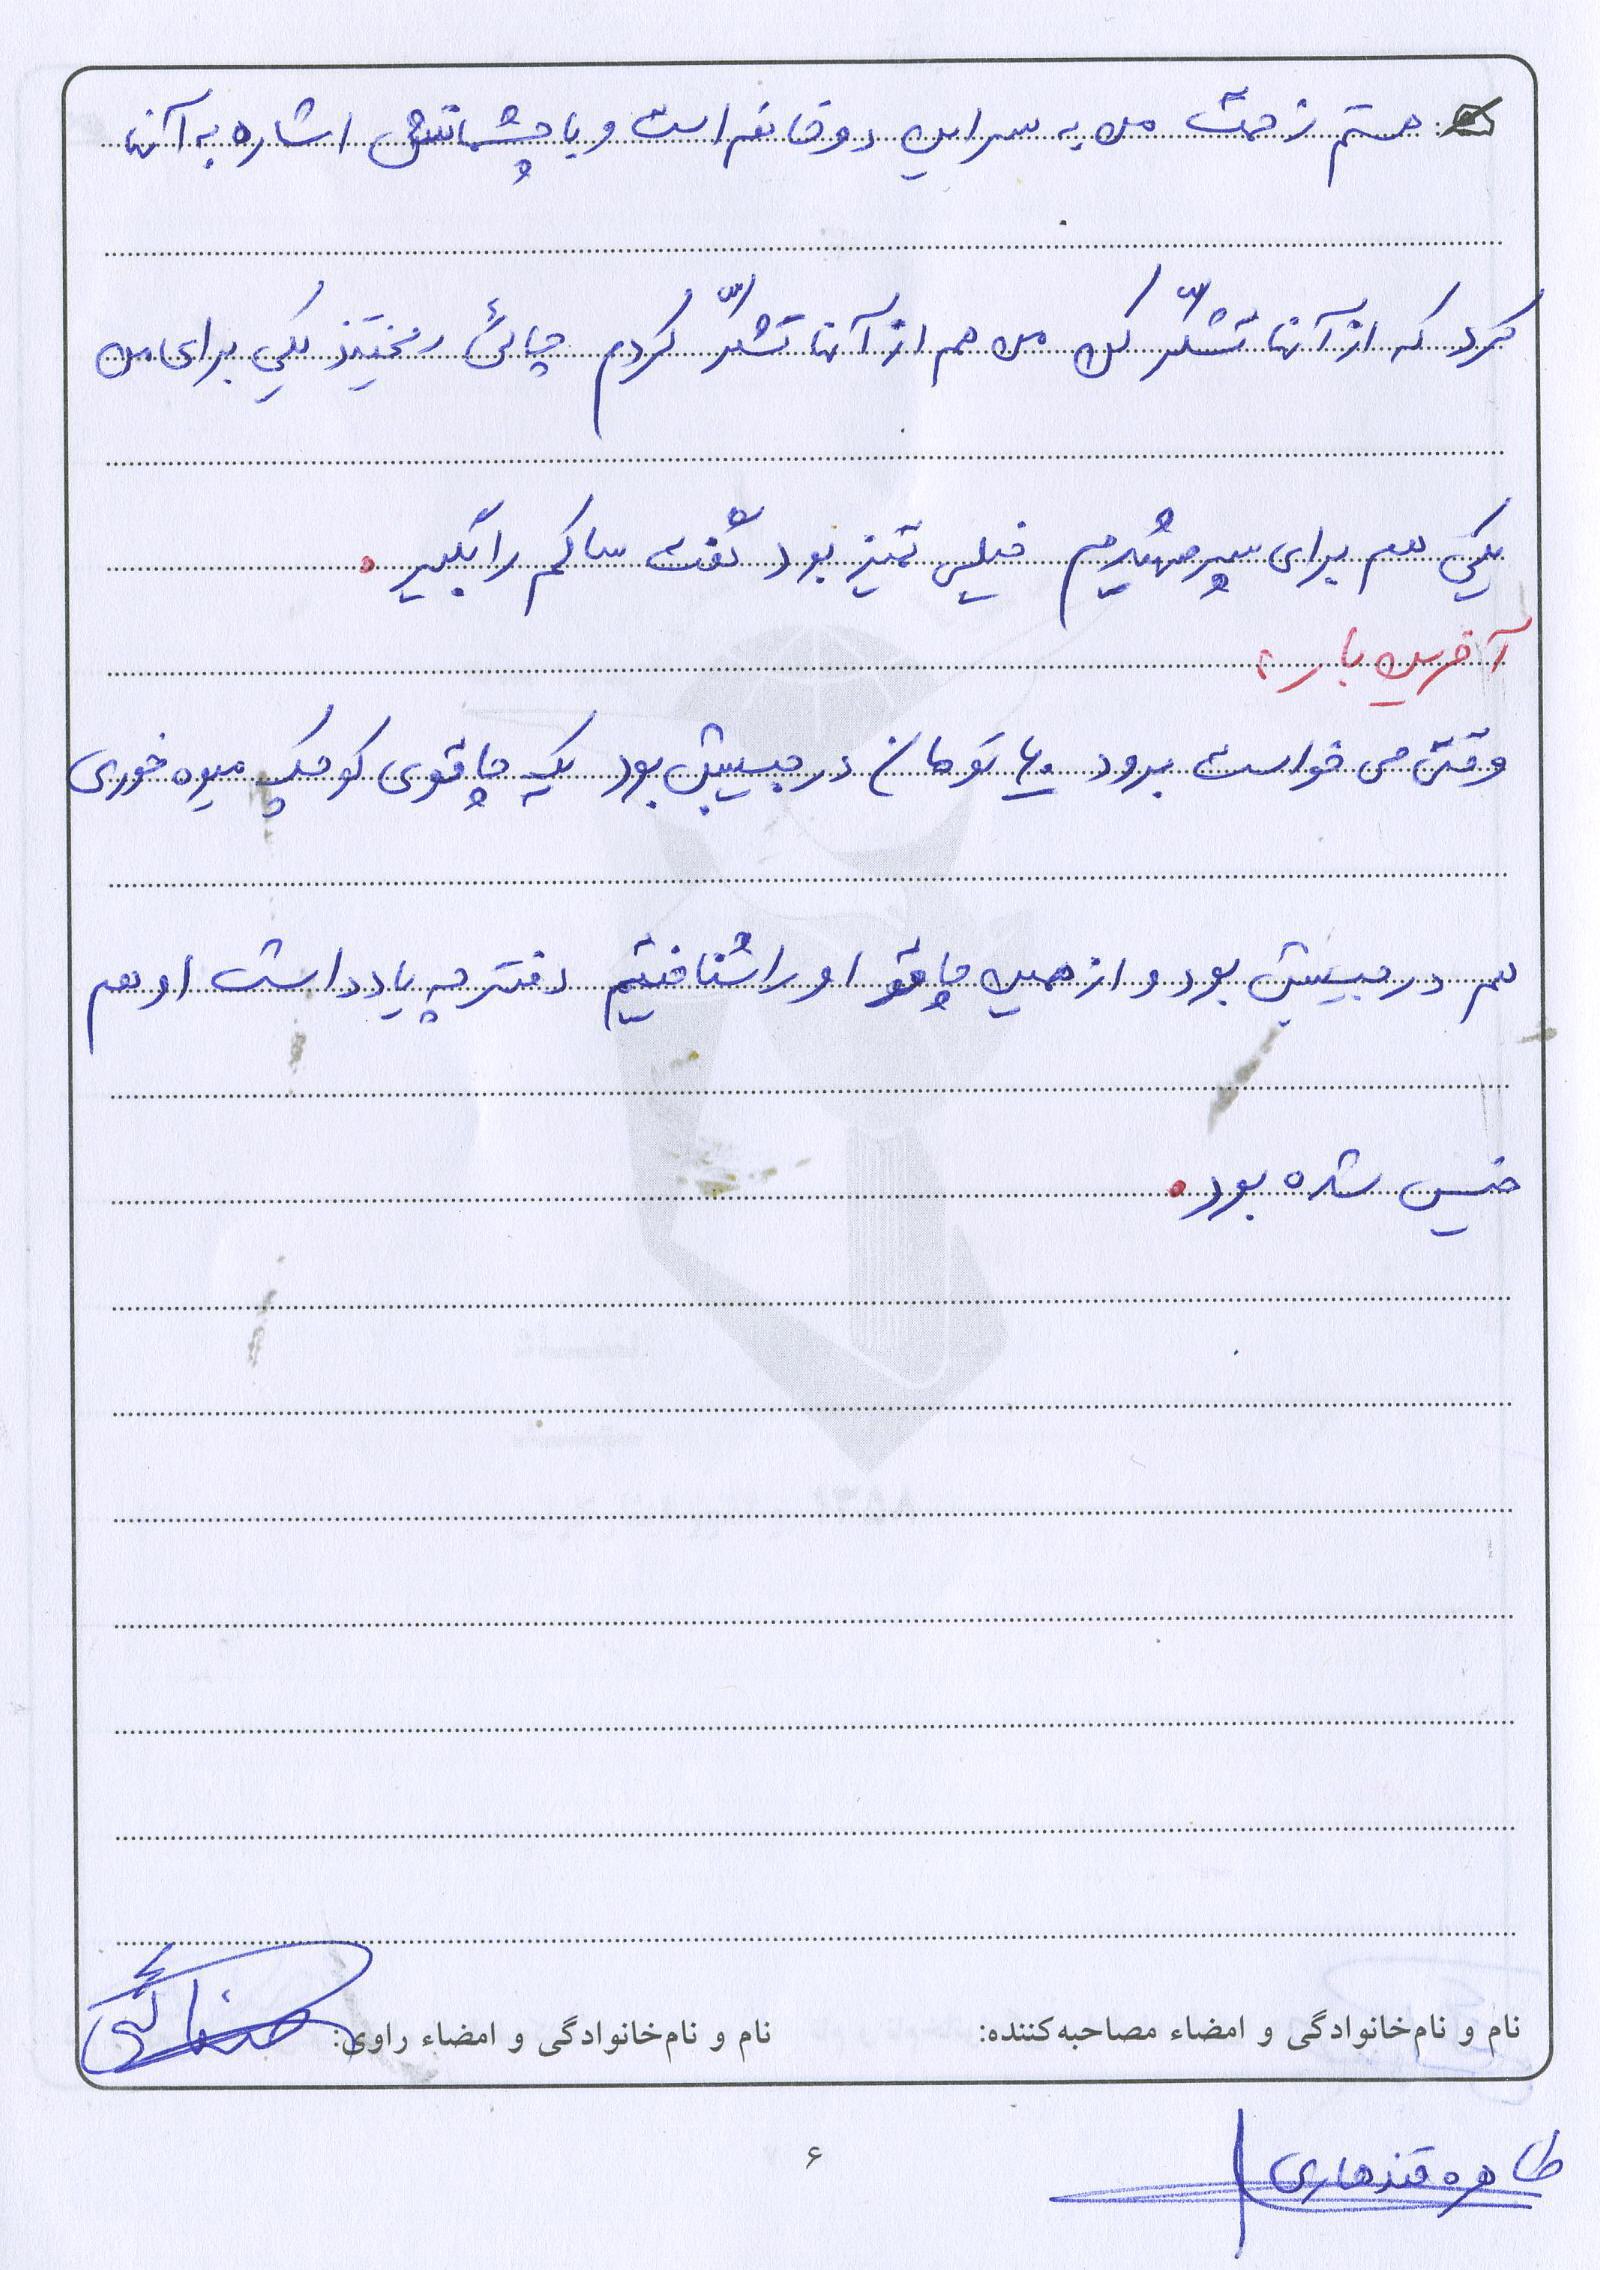 هستم زحمت من به سر این دو خانم است و با چشمانش اشاره به آنها
کرد که از آنها تشکّر کن من هم از آنها تشکّر کردم چائی ریختند یکی برای من
یکی هم برای سپر مهتریم خیلی تمیز بود گفت ساکم را بگیر.
آخرین بار:
وقتی می خواست برود ۷۰ تومان در جیبش بود یک چاقوی کوچک میوه خوری
هم در جیبش بود و از همین چاقو او را شناختیم دفترچه یادداشت او هم
خیس شده بود.
نام و نام‌خانوادگی و امضاء مصاحبه‌کننده:
نام و نام‌خانوادگی و امضاء راوی:
طاهره قندهاری
۶